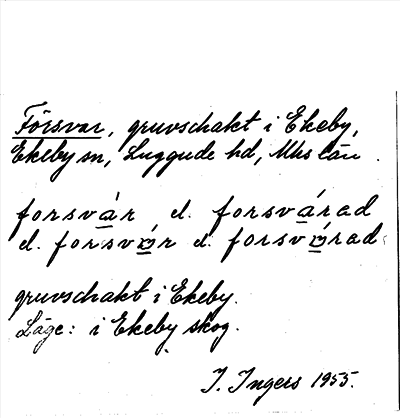 Försvar, gruvschakt i Ekeby,
Ekeby sn, Luggude hd, Mhs län.
forsvár el. forsvárad
el. forsvór el. forsvórad
gruvschakt i Ekeby.
Läge: i Ekeby skog.
I. Ingers 1955.